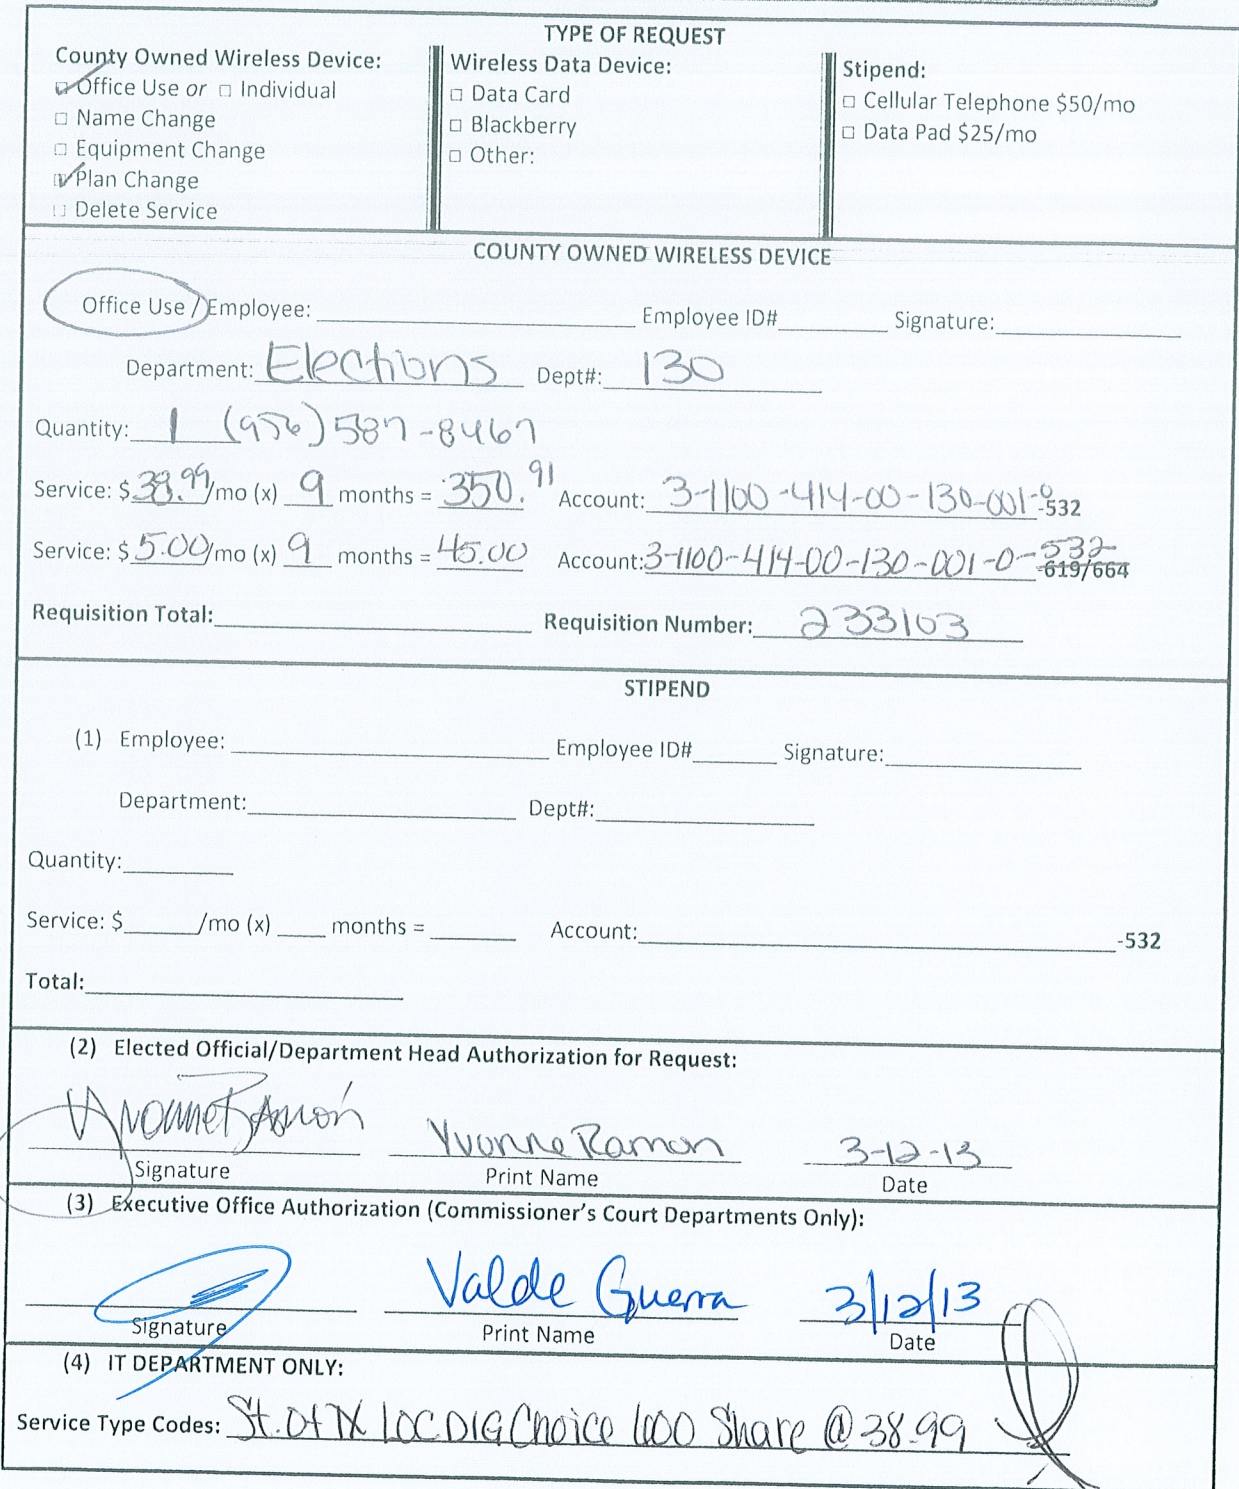 TYPE OF REQUEST
County Owned Wireless Device:
☑ Office Use or □ Individual
□ Name Change
□ Equipment Change
☑ Plan Change
□ Delete Service
Wireless Data Device:
□ Data Card
□ Blackberry
□ Other:
Stipend:
□ Cellular Telephone $50/mo
□ Data Pad $25/mo
COUNTY OWNED WIRELESS DEVICE
Office Use / Employee: Employee ID# Signature:
Department: Elections Dept#: 130
Quantity: 1 (956) 587-8467
Service: $ 38.99/mo (x) 9 months = 350.91 Account: 3-1100-414-00-130-001-0-532
Service: $ 5.00/mo (x) 9 months = 45.00 Account: 3-1100-414-00-130-001-0-532 -619/664
Requisition Total: Requisition Number: 233103
STIPEND
(1) Employee: Employee ID# Signature:
Department: Dept#:
Quantity:
Service: $ /mo (x) months = Account: -532
Total:
(2) Elected Official/Department Head Authorization for Request:
Yvonne Ramón Yvonne Ramon 3-12-13
Signature Print Name Date
(3) Executive Office Authorization (Commissioner's Court Departments Only):
Valde Guerra 3/12/13
Signature Print Name Date
(4) IT DEPARTMENT ONLY:
Service Type Codes: St. Of TX LOC DIG Choice 600 Share @ 38.99